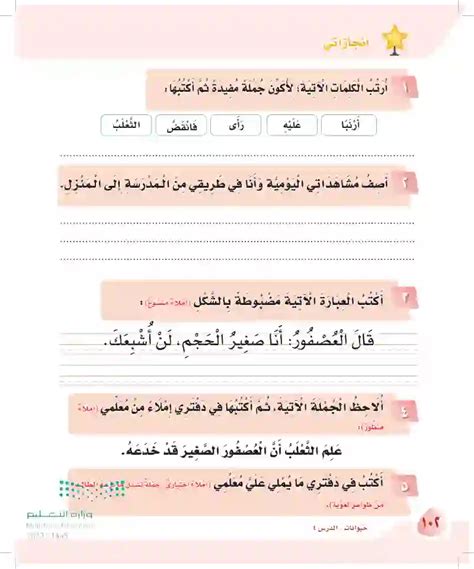 إنجازاتي
١ أُرَتِّبُ الْكَلِمَاتِ الْآتِيَةَ؛ لِأُكَوِّنَ جُمْلَةً مُفِيدَةً ثُمَّ أَكْتُبُهَا:
أَرْنَبًا عَلَيْهِ رَأَى فَانْقَضَّ الثَّعْلَبُ
٢ أَصِفُ مُشَاهَدَاتِي الْيَوْمِيَّةَ وَأَنَا فِي طَرِيقِي مِنَ الْمَدْرَسَةِ إِلَى الْمَنْزِلِ.
٣ أَكْتُبُ الْعِبَارَةَ الْآتِيَةَ مَضْبُوطَةً بِالشَّكْلِ (إملاء منسوخ):
قَالَ الْعُصْفُورُ: أَنَا صَغِيرُ الْحَجْمِ، لَنْ أُشْبِعَكَ.
٤ أُلَاحِظُ الْجُمْلَةَ الْآتِيَةَ، ثُمَّ أَكْتُبُهَا فِي دَفْتَرِي إِمْلَاءً مِنْ مُعَلِّمِي (إملاء
منظور):
عَلِمَ الثَّعْلَبُ أَنَّ الْعُصْفُورَ الصَّغِيرَ قَدْ خَدَعَهُ.
٥ أَكْتُبُ فِي دَفْتَرِي مَا يُمْلِي عَلَيَّ مُعَلِّمِي (إملاء اختباري: جملة
من ظواهر لغوية).
وزارة التعليم
١٠٢ حيوانات - الدرس ٤